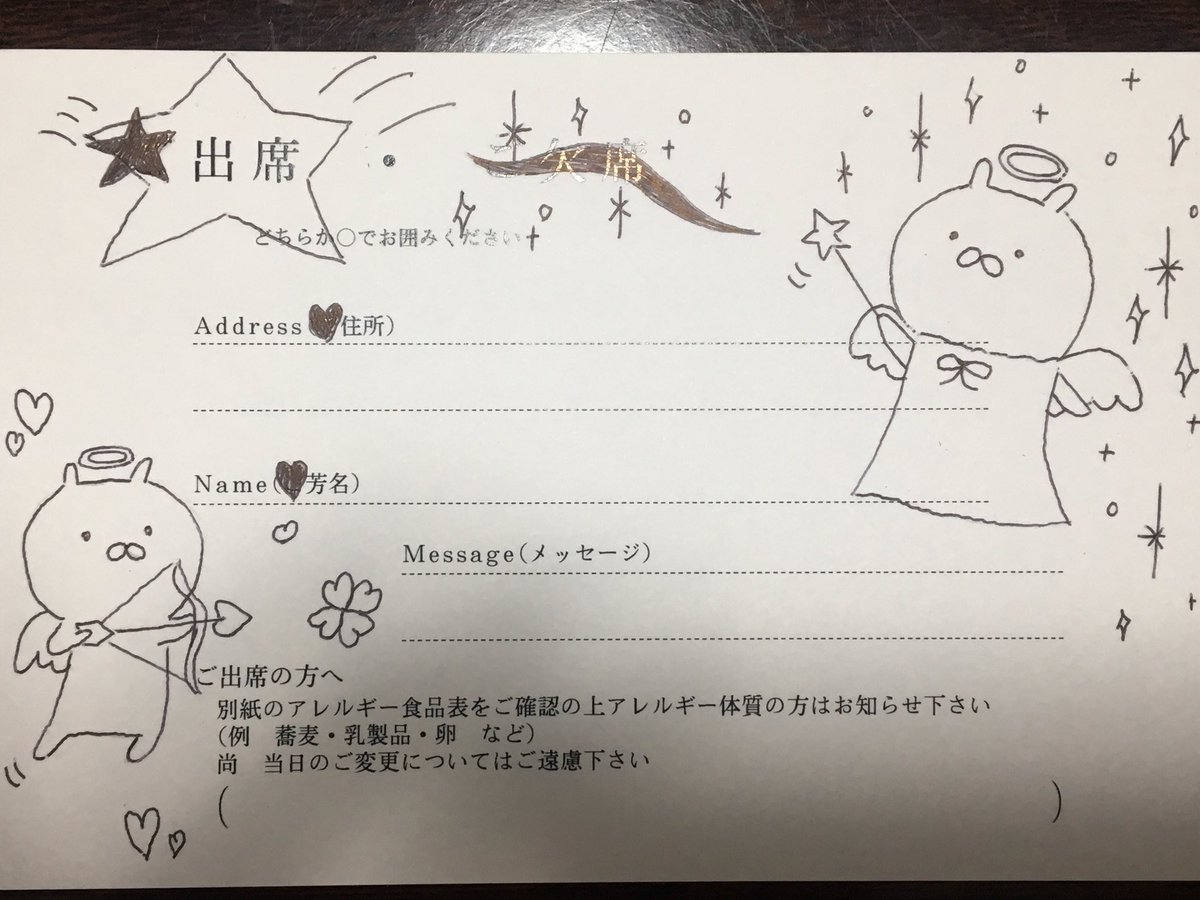 出席 ・ 欠席
どちらか○でお囲みください
Address 住所)
Name( 芳名)
Message(メッセージ)
ご出席の方へ
別紙のアレルギー食品表をご確認の上アレルギー体質の方はお知らせ下さい
(例 蕎麦・乳製品・卵 など)
尚 当日のご変更についてはご遠慮下さい
( )